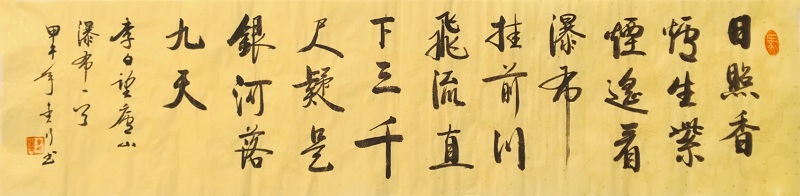 日照香
炉生紫
煙遙看
瀑布
挂前川
飛流直
下三千
尺疑是
銀河落
九天
李白望廬山
瀑布一首
甲午年
书